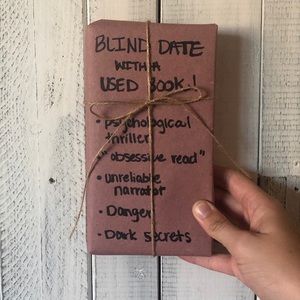 BLIND DATE
WITH A
USED BOOK!
• psychological
thriller
• "obsessive read"
• unreliable
narrator
• Danger
• Dark secrets